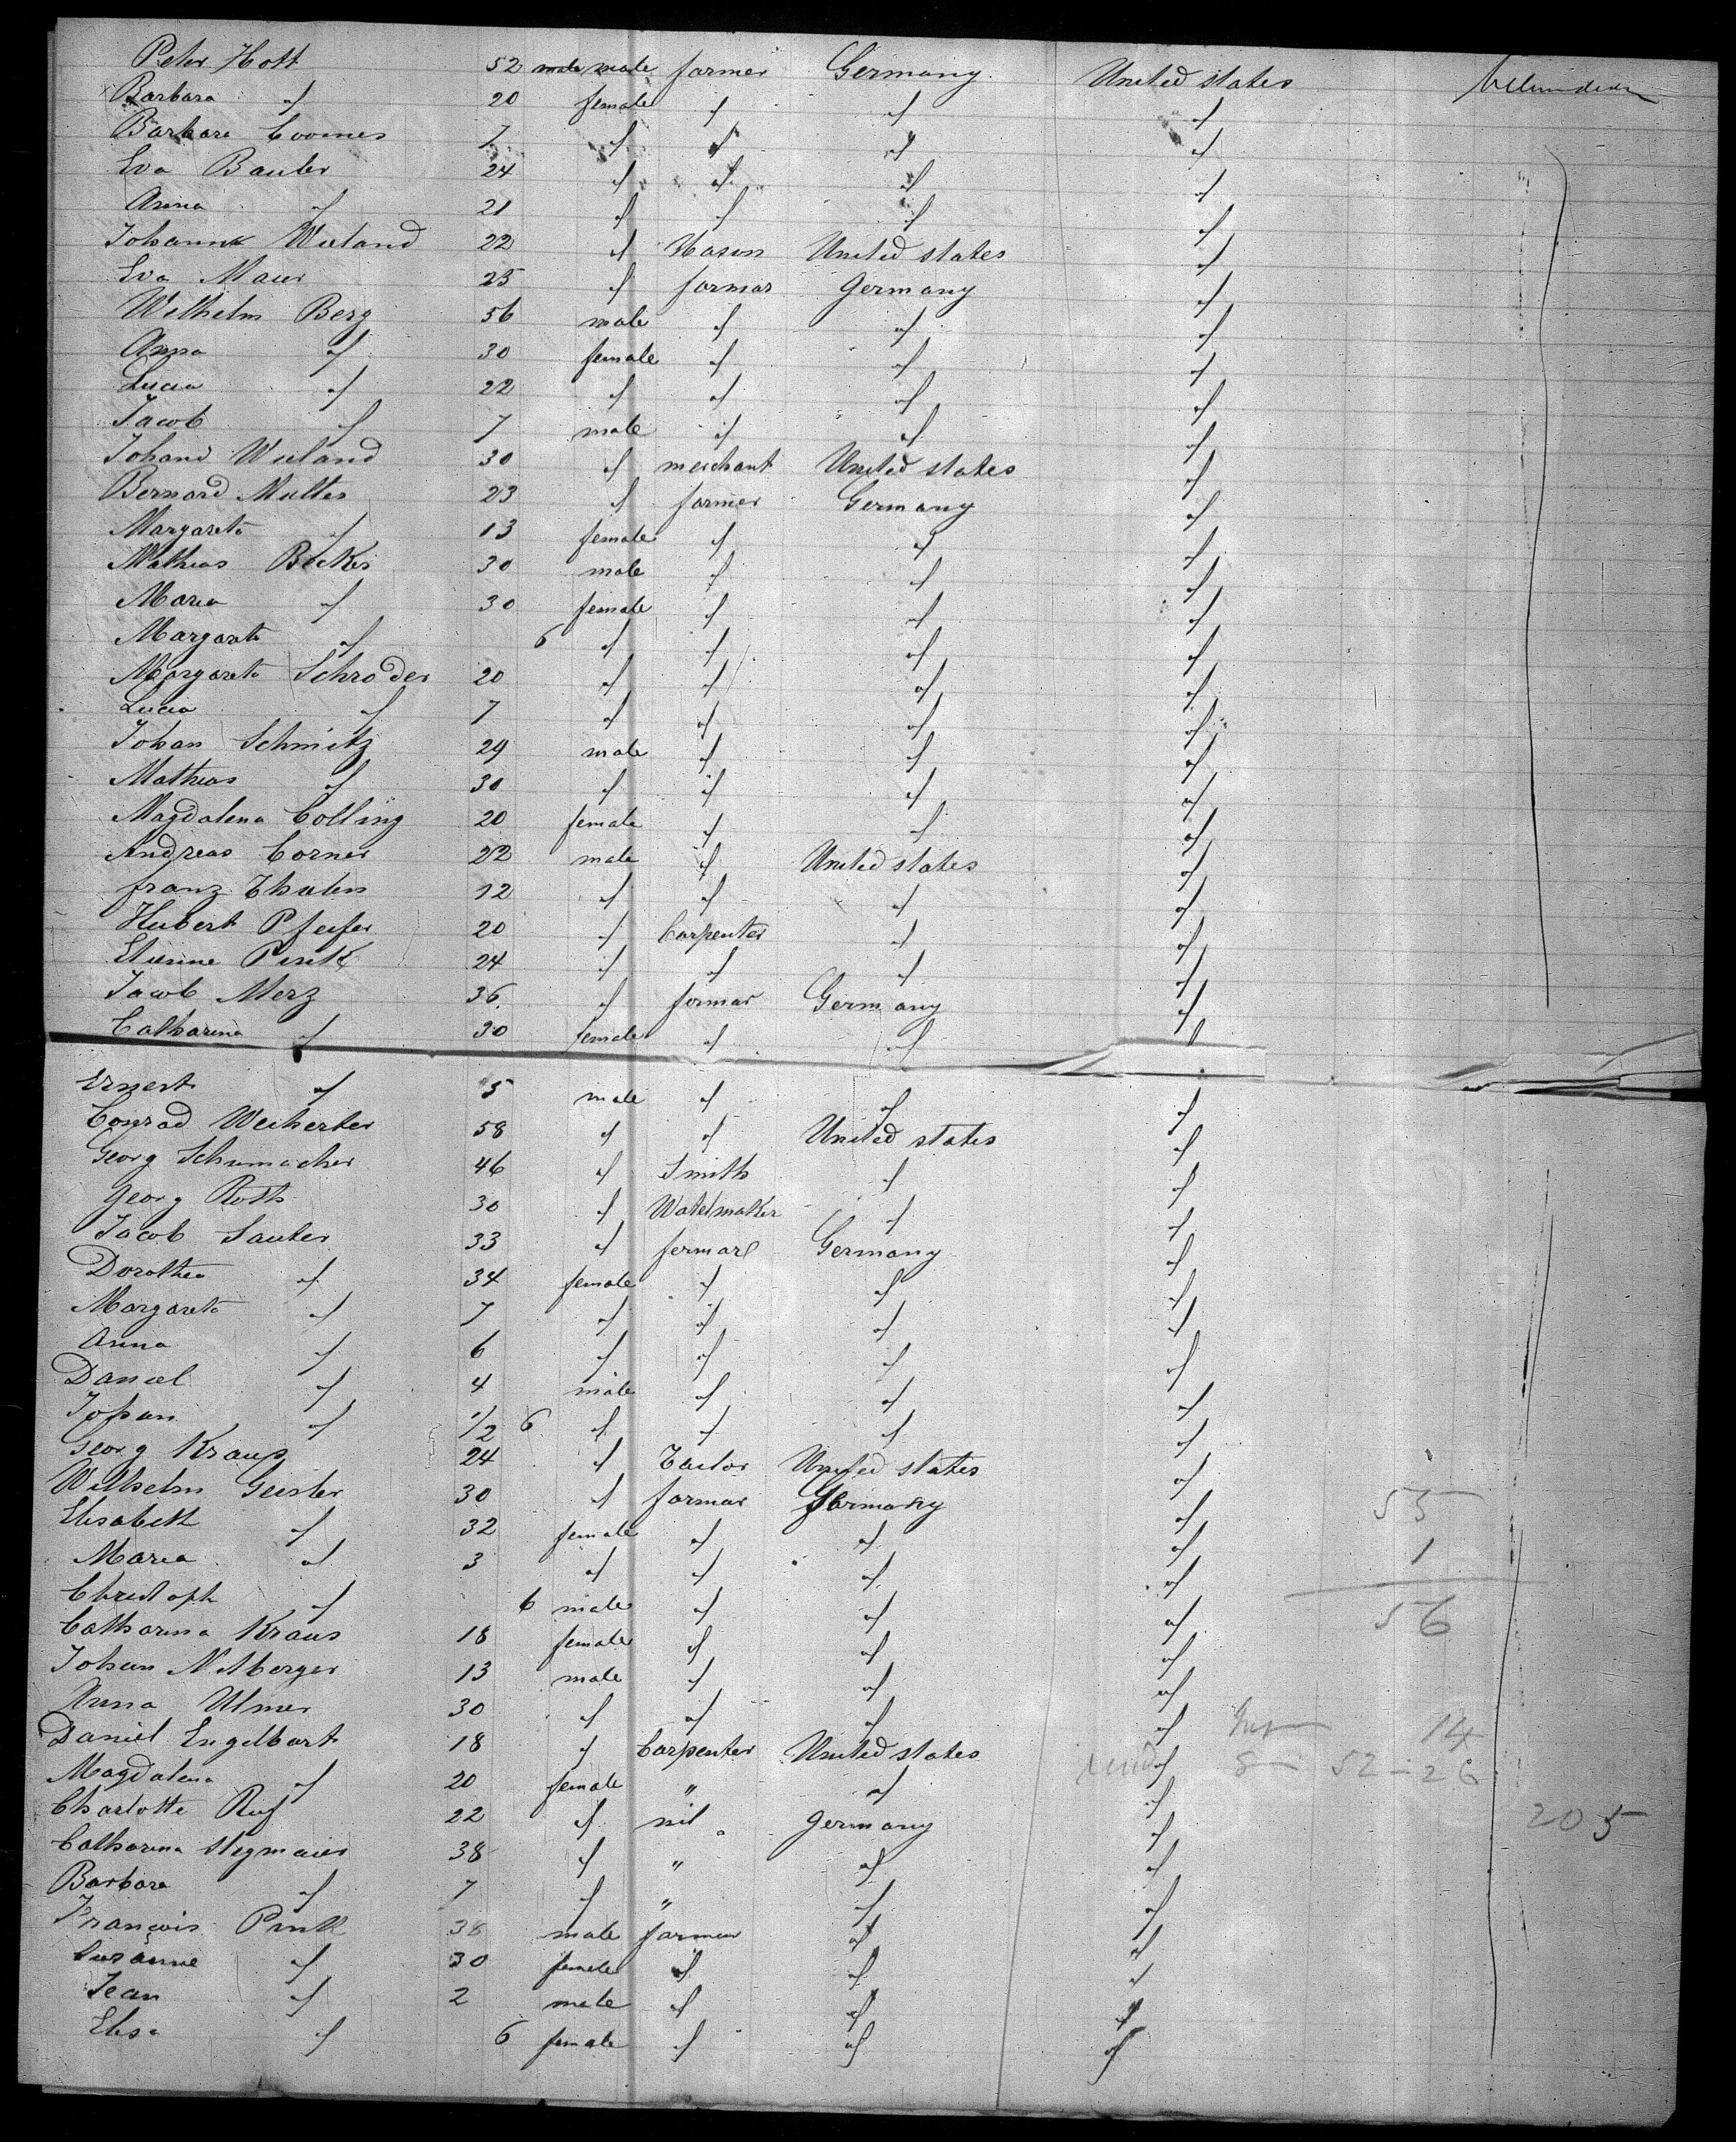 Peter Hott 52 male male farmer Germany United states
Barbara " 20 female " " "
Barbara Coomes 7 " " " "
Eva Bauler 24 " " " "
Anna " 21 " " " "
Johanna Wieland 22 " Mason United states "
Eva Maur 25 " farmar Germany "
Wilhelm Berg 56 male " " "
Anna " 30 female " " "
Lucia " 22 " " " "
Jacob " 7 male " " "
Johann Wieland 30 " merchant United states "
Bernard Multes 23 " farmer Germany "
Margareta " 13 female " " "
Mathias Becker 30 male " " "
Maria " 30 female " " "
Margareta " 6 " " " "
Margareta Schroder 20 " " " "
Lucia " 7 " " " "
Johan Schmitz 29 male " " "
Mathias " 30 " " " "
Magdalena Colling 20 female " " "
Andreas Corner 22 male " United states "
franz Thulen 12 " " " "
Hubert Pfeifer 20 " Carpenter " "
Etienne Pintk 24 " " " "
Jacob Merz 36 " farmar Germany "
Catharina " 30 female " " "
Ernest " 5 male " " "
Conrad Weiherter 58 " " United states "
Georg Schumacher 46 " Smith " "
Georg Roth 30 " Watchmaker " "
Jacob Sauter 33 " farmar Germany "
Dorothea " 34 female " " "
Margareta " 7 " " " "
Anna " 6 " " " "
Daniel " 4 male " " "
Johan " 1/2 6 " " " "
Georg Kraus 24 " Tailor United states "
Wilhelm Geister 30 " farmar Germany "
Elisabeth " 32 female " " "
Maria " 3 " " " "
Christoph " 6 male " " "
Catharina Kraus 18 female " " "
Johan 13 male " " "
Anna Ulmer 30 " " " "
Daniel Engelbart 18 " Carpenter United states "
Magdalena " 20 female " " "
Charlotte Ruf 22 " nil Germany "
Catharina Stegmaier 38 " " " "
Barbara " 7 " " " "
François 38 male farmer " "
Suzanne " 30 female " " "
Jean " 2 male " " "
Elisa " 6 female " " "
55
1
56
14
52 - 26
205